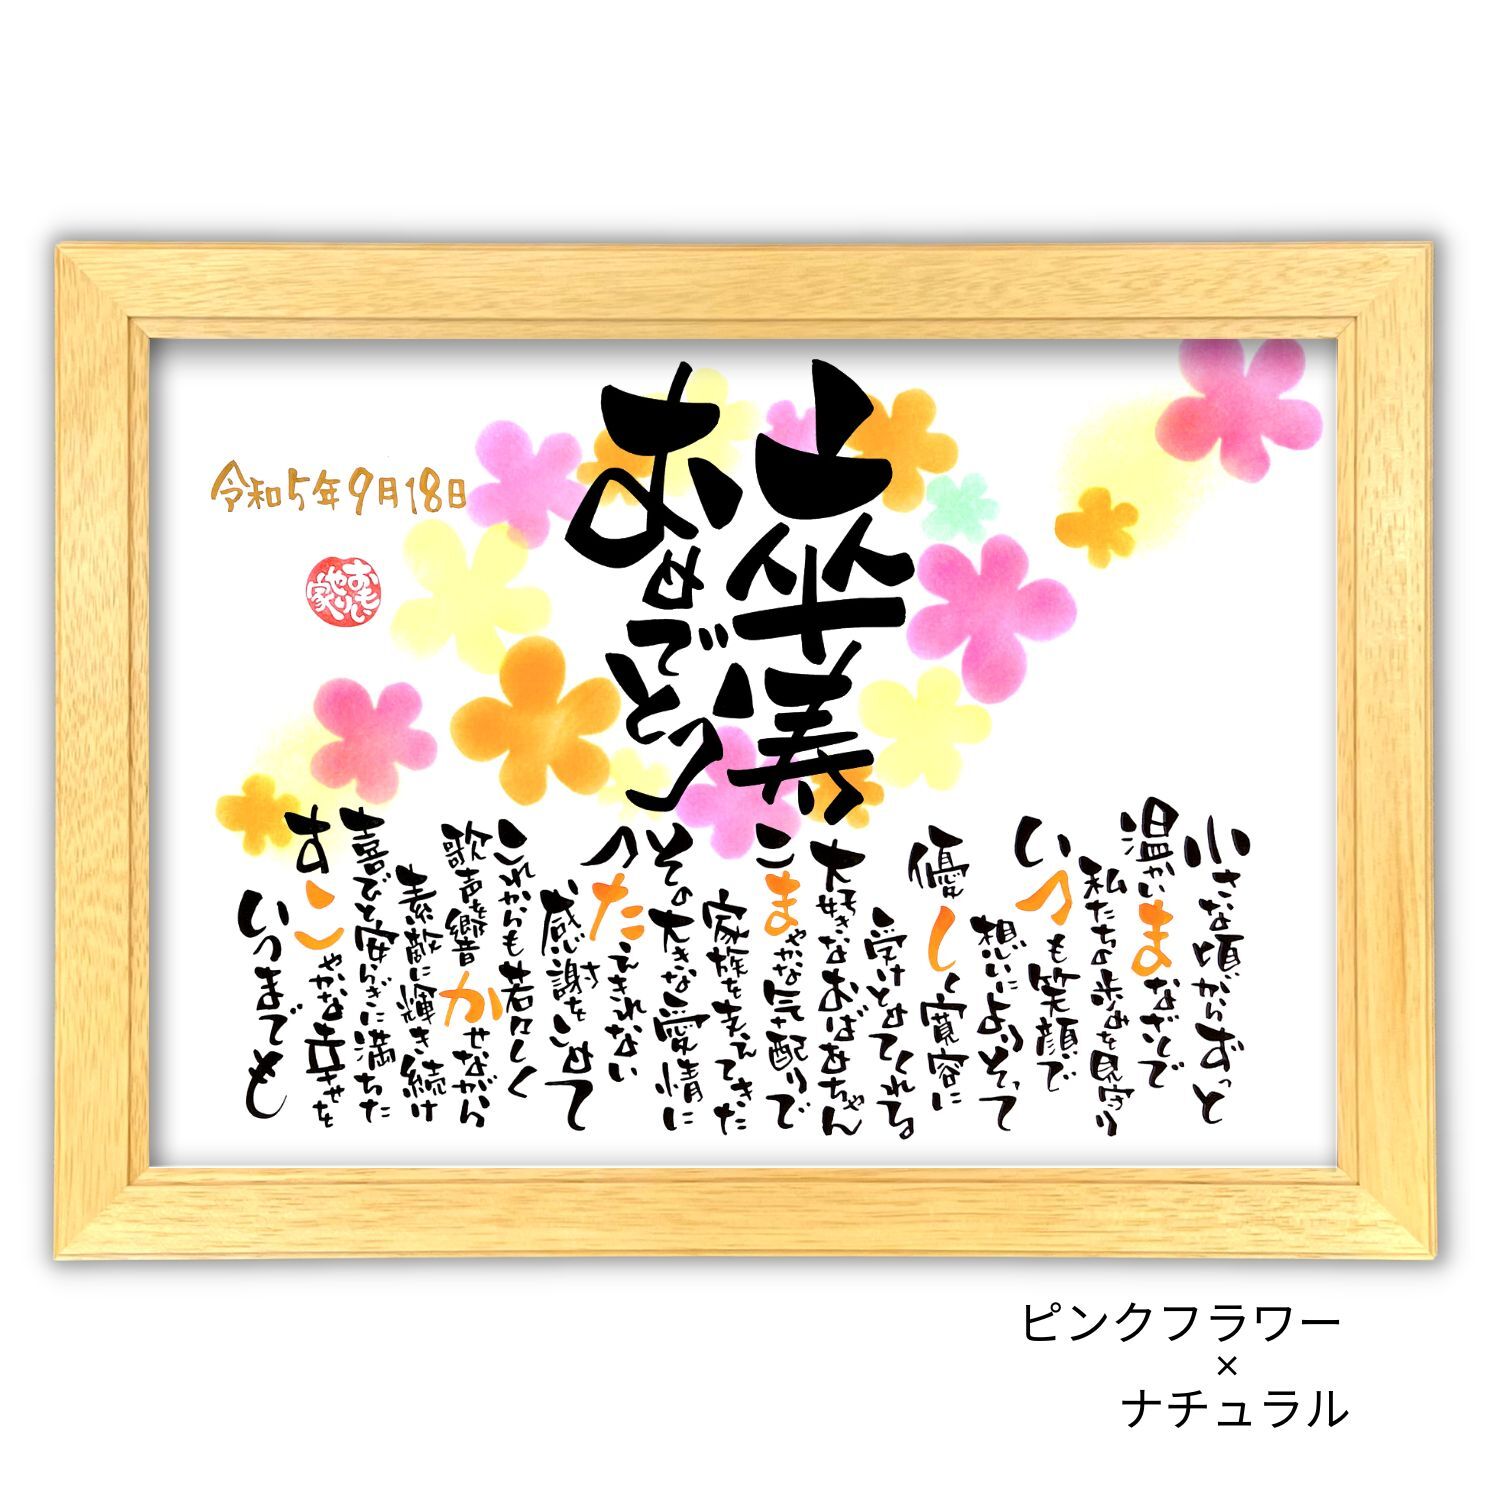 卒寿
おめでとう
令和5年9月18日
おもいやり家
小さな頃からずっと
温かいまなざしで
私たちの歩みを見守り
いつも笑顔で
想いによりそって
優しく寛容に
受けとめてくれる
大好きなおばあちゃん
こまやかな気配りで
家族を支えてきた
その大きな愛情に
つたえきれない
感謝をこめて
これからも若々しく
歌声を響かせながら
素敵に輝き続け
喜びと安らぎに満ちた
すこやかな幸せを
いつまでも
ピンクフラワー
×
ナチュラル